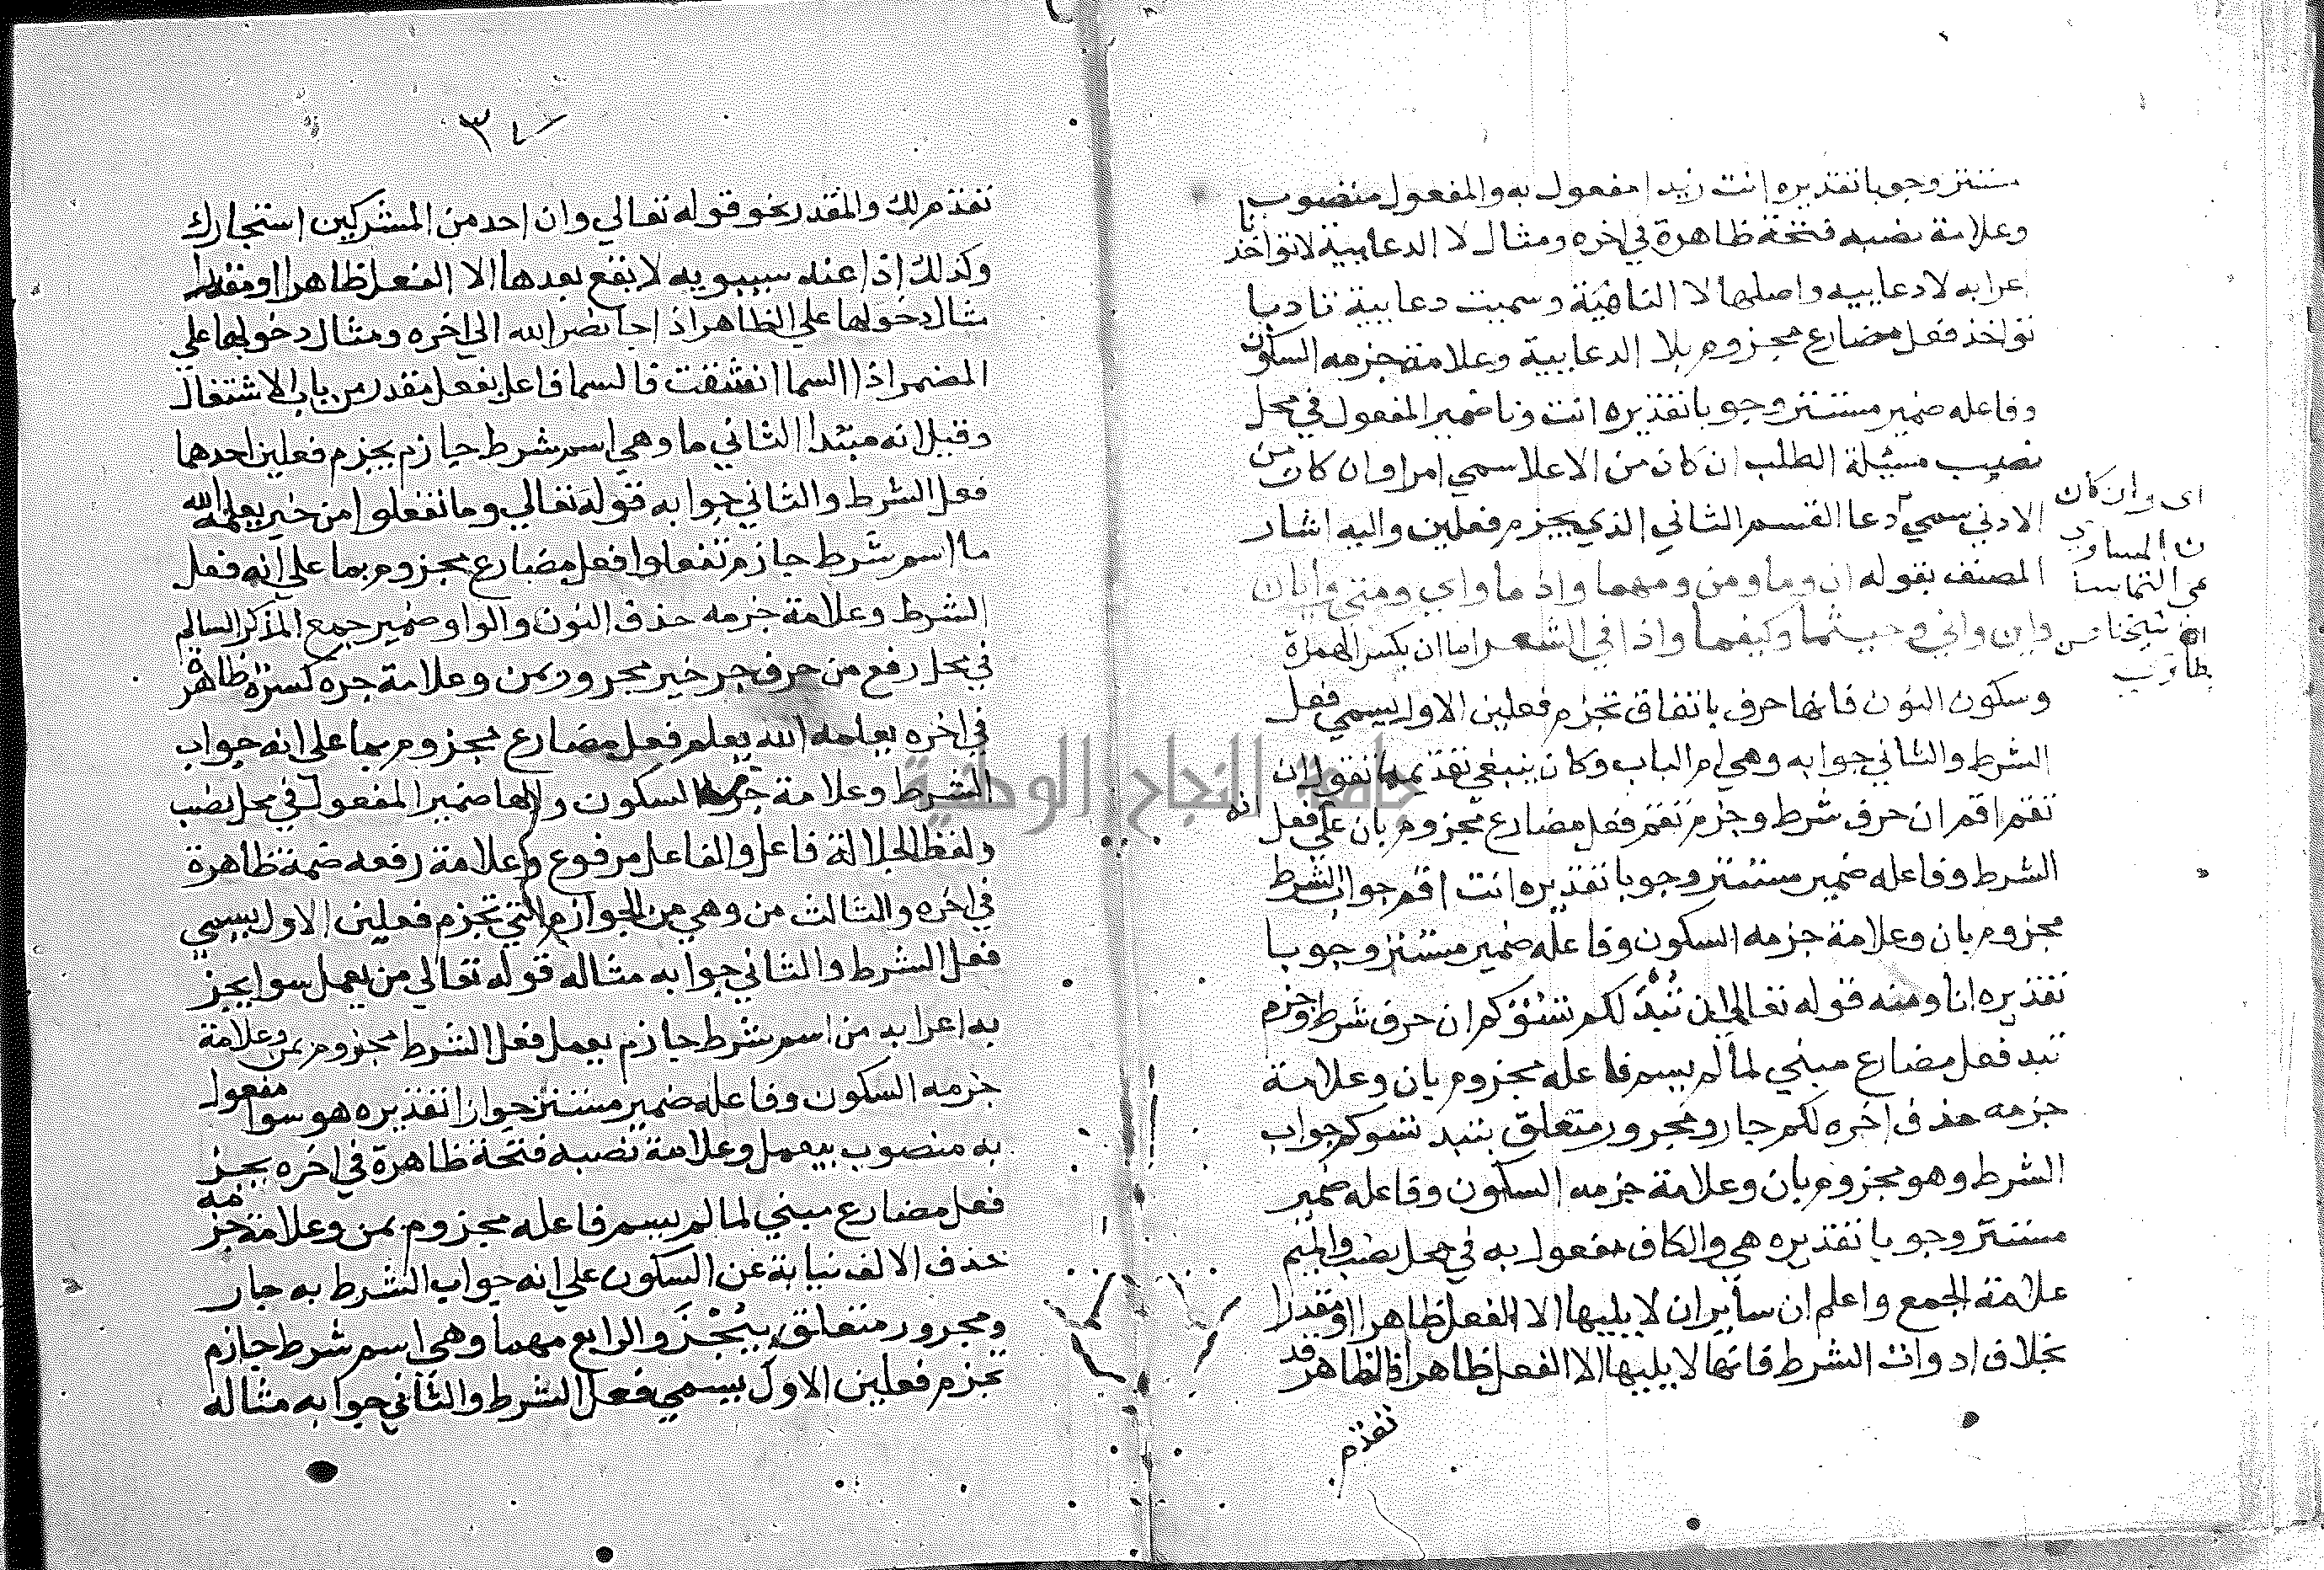 مستتر وجوبا تقديره انت زيدا مفعول به والمفعول منصوب
وعلامة نصبه فتحة ظاهرة في اخره ومثال لا الدعابية لا تواخذنا
اعرابه لا دعابيه واصلها لا الناهية وسميت دعابية تادبا
تواخذ فعل مضارع مجزوم بلا الدعابية وعلامة جزمه السكون
وفاعله ضمير مستتر وجوبا تقديره انت ونا ضمير المفعول في محل
نصيب مسئلة الطلب ان كان من الاعلا سمي امرا وان كان من
الادني سمي دعا القسم الثاني الذي يجزم فعلين واليه اشار
المصنف بقوله ان وما ومن ومهما واذ ما واي ومتي وايان
واين واني وحيثما وكيفما واذا في الشعر اما ان بكسر الهمزة
وسكون النون فانها حرف باتفاق تجزم فعلين الاول يسمي فعل
الشرط والثاني جوابه وهي ام الباب وكان ينبغي تقديمها تقول ان
تقم اقم ان حرف شرط وجزم تقم فعل مضارع مجزوم بان علي انه فعل
الشرط وفاعله ضمير مستتر وجوبا تقديره انت اقم جواب الشرط
مجزوم بان وعلامة جزمه السكون وفاعله ضمير مستتر وجوبا
تقديره انا ومنه قوله تعالي ان تُبْدَ لكم تسُؤْكم ان حرف شرط وجزم
تبد فعل مضارع مبني لما لم يسم فاعله مجزوم بان وعلامة
جزمه حذف اخره لكم جار ومجرور متعلق بتبد تسوكم جواب
الشرط وهو مجزوم بان وعلامة جزمه السكون وفاعله ضمير
مستتر وجوبا تقديره هي والكاف مفعول به في محل نصب والميم
علامة الجمع واعلم ان ساير ان لا يليها الا الفعل ظاهرا او مقدرا
بخلاف ادوات الشرط فانها لا يليها الا الفعل ظاهرا فالظاهر قد
تقدم
اي وان كان
من المساوي
سمي التماسا
شيخنا
٣٧
تقدم لك والمقدر نحو قوله تعالي وان احد من المشركين استجارك
وكذلك اذا عند سيبويه لا يقع بعدها الا الفعل ظاهرا او مقدرا
مثال دخولها علي الظاهر اذا جا نصر الله الي اخره ومثال دخولها علي
المضمر اذا السما انشقت فالسما فاعل بفعل مقدر من باب الاشتغال
وقيل انه مبتدا الثاني ما وهي اسم شرط جازم يجزم فعلين احدهما
فعل الشرط والثاني جوابه قوله تعالي وما تفعلوا من خير يعلمه الله
ما اسم شرط جازم تفعلوا فعل مضارع مجزوم بما علي انه فعل
الشرط وعلامة جزمه حذف النون والواو ضمير جمع المذكر السالم
في محل رفع من حرف جر خير مجرور بمن وعلامة جره كسرة ظاهرة
في اخره يعلمه الله يعلم فعل مضارع مجزوم بما علي انه جواب
الشرط وعلامة جزمه السكون والها ضمير المفعول في محل نصب
ولفظ الجلالة فاعل والفاعل مرفوع وعلامة رفعه ضمة ظاهرة
في اخره والثالث من وهي من الجوازم التي تجزم فعلين الاول يسمي
فعل الشرط والثاني جوابه مثاله قوله تعالي من يعمل سوا يجز
به اعرابه من اسم شرط جازم يعمل فعل الشرط مجزوم بمن وعلامة
جزمه السكون وفاعله ضمير مستتر جوازا تقديره هو سوا مفعول
به منصوب بيعمل وعلامة نصبه فتحة ظاهرة في اخره يجز
فعل مضارع مبني لما لم يسم فاعله مجزوم بمن وعلامة جزمه
حذف الالف نيابة عن السكون علي انه جواب الشرط به جار
ومجرور متعلق بيُجْزَ والرابع مهما وهي اسم شرط جازم
يجزم فعلين الاول يسمي فعل الشرط والثاني جوابه مثاله
جامعة النجاح الوطنية